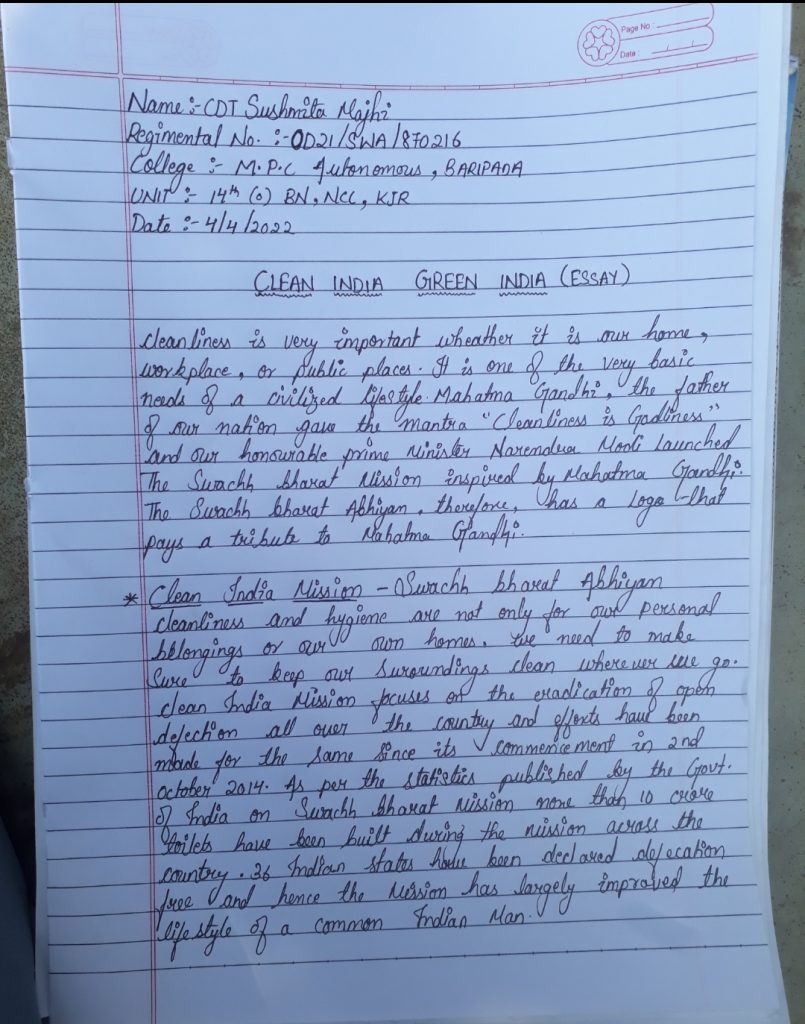 Page No :
Date :
Name :- CDT Sushmita Majhi
Regimental No. :- OD21/SWA/870216
College :- M.P.C Autonomous, BARIPADA
UNIT :- 14th (O) BN, NCC, KJR
Date :- 4/4/2022
CLEAN INDIA GREEN INDIA (ESSAY)
cleanliness is very important wheather it is our home,
workplace, or public places. It is one of the very basic
needs of a civilized lifestyle. Mahatma Gandhi, the father
of our nation gave the mantra "Cleanliness is Godliness"
and our honourable prime Minister Narendra Modi Launched
The Swachh bharat Mission inspired by Mahatma Gandhi.
The Swachh bharat Abhiyan, therefore, has a logo that
pays a tribute to Mahatma Gandhi.
* Clean India Mission - Swachh bharat Abhiyan
cleanliness and hygiene are not only for our personal
belongings or our own homes. We need to make
Sure to keep our Suroundings clean where ever we go.
clean India Mission focuses on the eradication of open
defection all over the country and efforts have been
made for the same Since its commencement in 2nd
october 2014. As per the statistics published by the Govt.
of India on Swachh bharat Mission more than 10 crore
toilets have been built during the mission across the
country. 36 Indian states have been declared defecation
free and hence the Mission has largely improved the
life style of a common Indian Man.